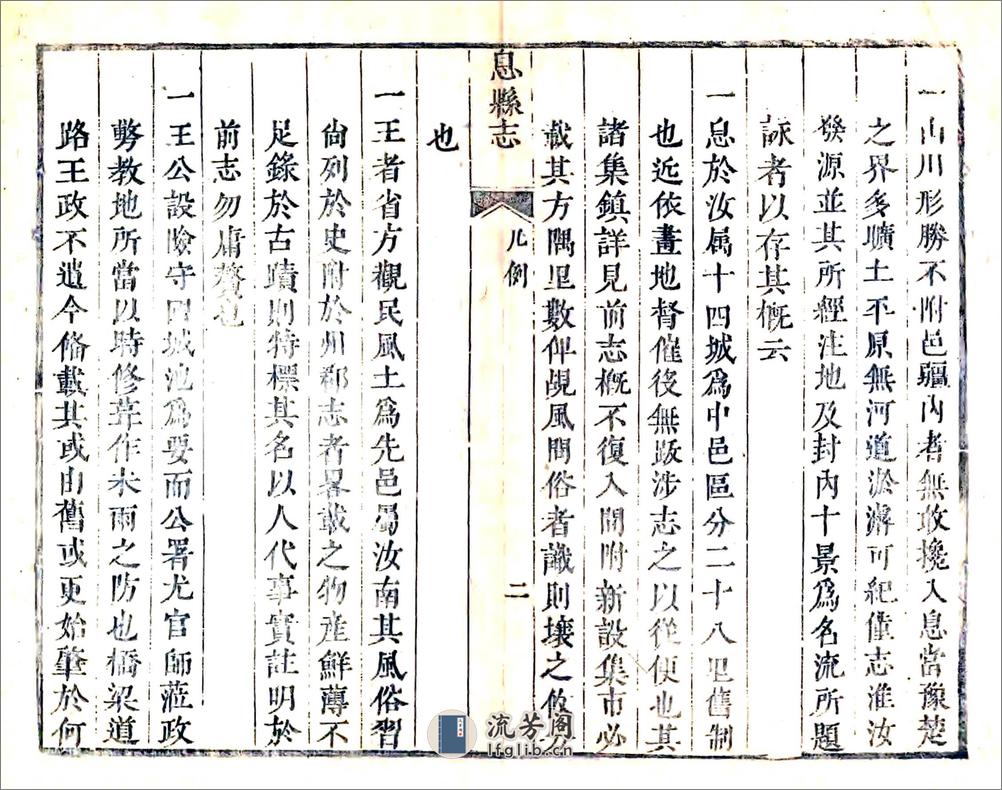 一山川形勝不附邑疆內者無敢攙入息當豫楚
之界多曠土平原無河道淤澥可紀僅志淮汝
發源並其所經注地及封內十景爲名流所題
詠者以存其概云
一息於汝属十四城爲中邑區分二十八里舊制
也近依畫地督催役無跋涉志之以從便也其
諸集鎮詳見前志概不復入間附新設集市必
載其方隅里數俾覘風問俗者識則壤之攸
也
一王者省方觀民風土爲先邑屬汝南其風俗習
尙列於史附於州郡志者畧載之物産鮮薄不
足錄於古蹟則特標其名以人代事實註明於
前志勿庸贅也
一王公設險守囙城池爲要而公署尤官師蒞政
勢教地所當以時修葺作未雨之防也橋梁道
路王政不遺今俻載其或由舊或更始肇於何
息縣志
凡例
二
流芳阁
lfglib.cn